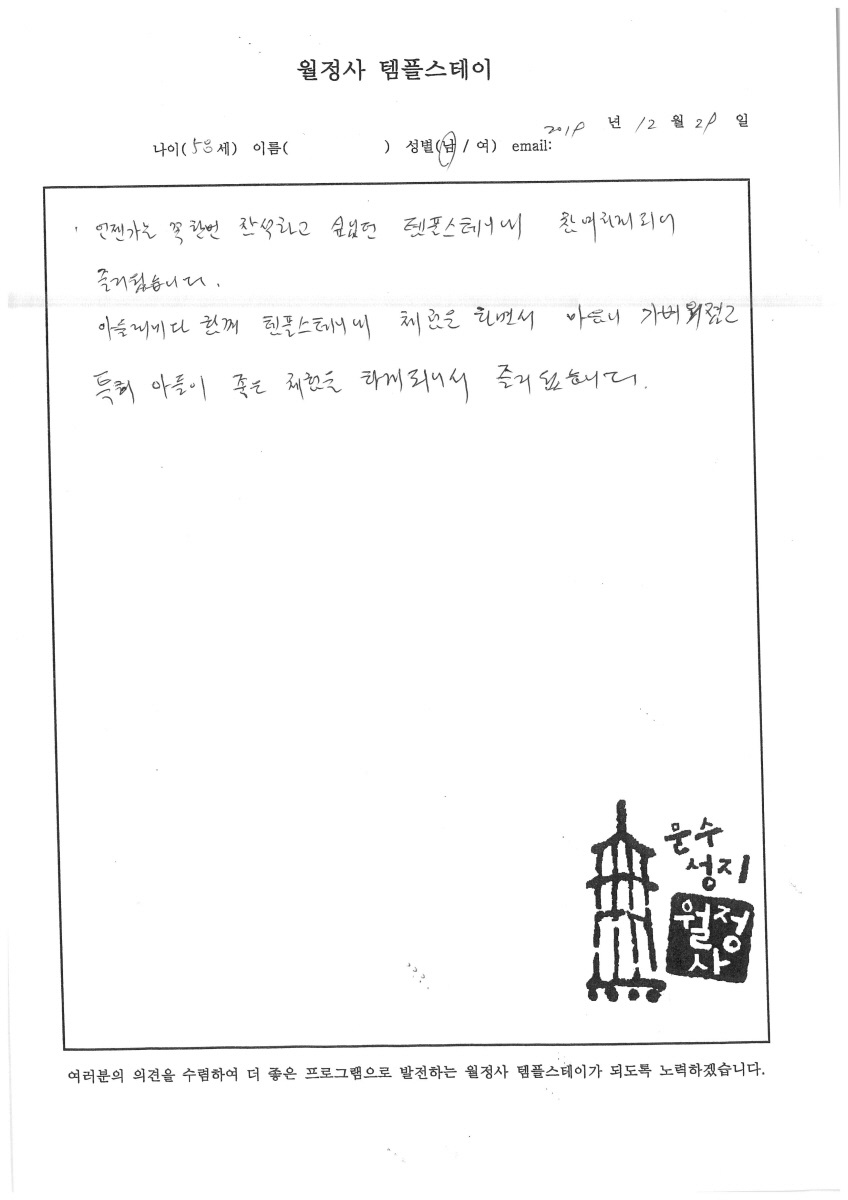 월정사 템플스테이
2019 년 12 월 29 일
나이( 58 세) 이름( ) 성별(남 / 여) email:
언젠가는 꼭 한번 참석하고 싶었던 템플스테이에 참여하게되니
즐거웠습니다.
함께 템플스테이에 체험을 하면서 마음이 가벼워졌고
특히 아들이 좋은 체험을 하게되어서 즐거웠습니다.
문수
성지
월정
사
여러분의 의견을 수렴하여 더 좋은 프로그램으로 발전하는 월정사 템플스테이가 되도록 노력하겠습니다.